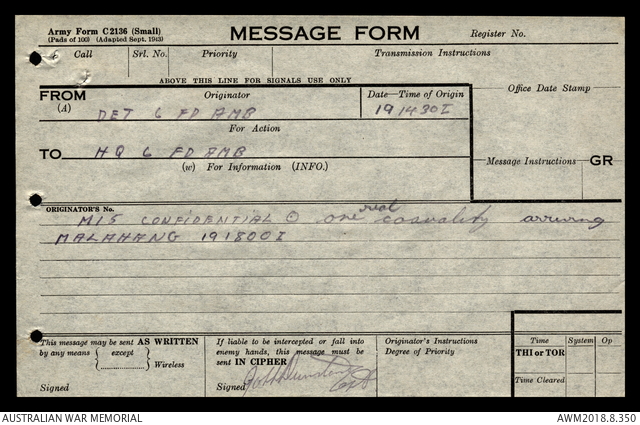 Army Form C2136 (Small)
(Pads of 100) (Adapted Sept. 1943)
MESSAGE FORM
Register No.
Call
Srl. No.
Priority
Transmission Instructions
ABOVE THIS LINE FOR SIGNALS USE ONLY
FROM
(A)
Originator
Date—Time of Origin
Office Date Stamp
DET 6 FD AMB
191430I
For Action
TO
HQ 6 FD AMB
(w) For Information (INFO.)
Message Instructions
GR
ORIGINATOR'S No.
M15 CONFIDENTIAL one real casuality arriving
MALAHANG 191800I
This message may be sent AS WRITTEN
by any means
except
Wireless
Signed
If liable to be intercepted or fall into
enemy hands, this message must be
sent IN CIPHER
Signed
Originator's Instructions
Degree of Priority
Time
System
Op
THI or TOR
Time Cleared
AUSTRALIAN WAR MEMORIAL
AWM2018.8.350